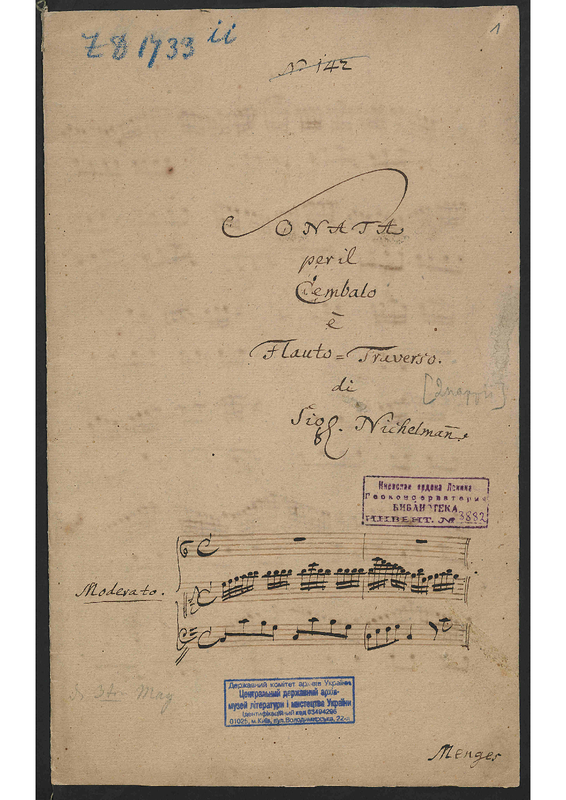 ZD 1733 ii
1
No 142
SONATA
per il
Cembalo
è
Flauto = Traverso.
di
Sigl. Nichelmañ.
Киевская ордена Ленина
Госконсерватория
БИБЛИОТЕКА
ИНВЕНТ. № 3882
Moderato.
Державний комітет архівів України
Центральний державний архів-
музей літератури і мистецтва України
Ідентифікаційний код 03494298
01025, м.Київ, вул.Володимирська, 22-
Menges